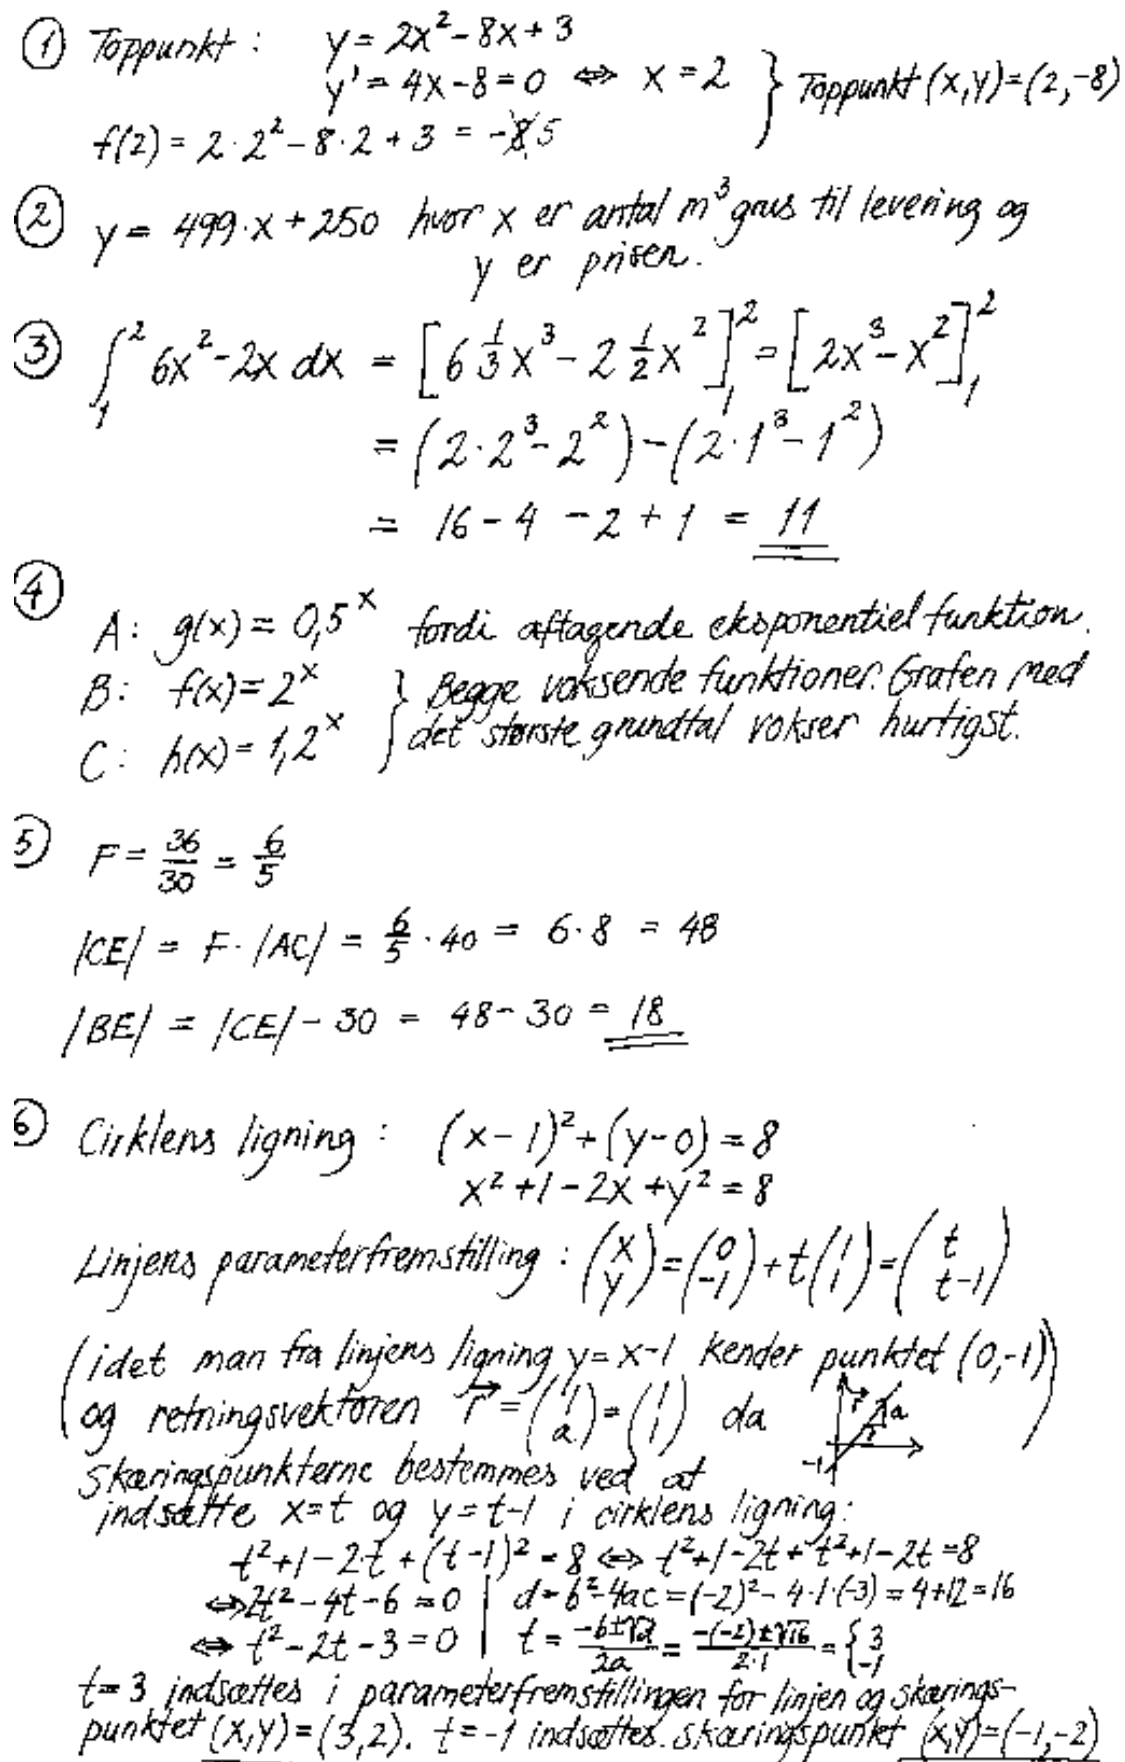 ① Toppunkt: y = 2x² - 8x + 3
y' = 4x - 8 = 0 ⇔ x = 2 } Toppunkt (x,y) = (2,-8)
f(2) = 2·2² - 8·2 + 3 = -8 5
② y = 499·x + 250 hvor x er antal m³ grus til levering og
y er prisen.
③ ∫₁² 6x² - 2x dx = [6 1/3 x³ - 2 1/2 x²]₁² = [2x³ - x²]₁²
= (2·2³ - 2²) - (2·1³ - 1²)
= 16 - 4 - 2 + 1 = 11
④
A: g(x) = 0,5^x fordi aftagende eksponentiel funktion.
B: f(x) = 2^x } Begge voksende funktioner. Grafen med
C: h(x) = 1,2^x det største grundtal vokser hurtigst.
⑤ F = 36/30 = 6/5
|CE| = F·|AC| = 6/5 · 40 = 6·8 = 48
|BE| = |CE| - 30 = 48 - 30 = 18
⑥ Cirklens ligning: (x - 1)² + (y - 0) = 8
x² + 1 - 2x + y² = 8
Linjens parameterfremstilling: (x y) = (0 -1) + t(1 1) = (t t-1)
(idet man fra linjens ligning y = x-1 kender punktet (0,-1)
og retningsvektoren r⃗ = (1 a) = (1 1) da r a 1 -1)
Skæringspunkterne bestemmes ved at
indsætte x=t og y=t-1 i cirklens ligning:
t² + 1 - 2·t + (t-1)² = 8 ⇔ t² + 1 - 2t + t² + 1 - 2t = 8
⇔ 2t² - 4t - 6 = 0 | d = b² - 4ac = (-2)² - 4·1·(-3) = 4 + 12 = 16
⇔ t² - 2t - 3 = 0 | t = (-b±√d)/2a = (-(-2)±√16)/2·1 = {3 -1
t = 3 indsættes i parameterfremstillingen for linjen og skærings-
punktet (x,y) = (3,2). t = -1 indsættes. skæringspunkt (x,y) = (-1,-2)